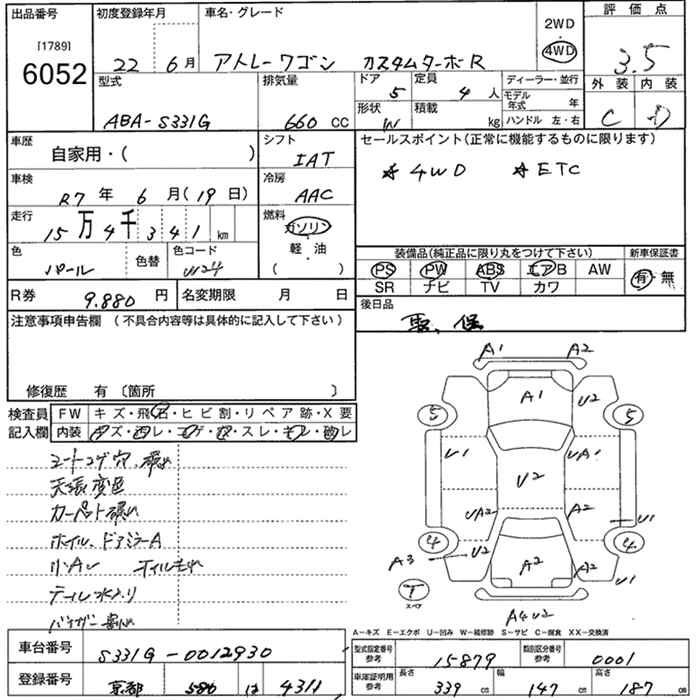 出品番号 初度登録年月 車名・グレード 2WD・4WD 評価点
[1789]
6052 22年6月 アトレーワゴン カスタムターボR 3.5
型式 排気量 ドア 5 定員 4人 ディーラー・並行 外装 内装
ABA-S331G 660CC 形状 W 積載 kg モデル年式 年 C D
ハンドル 左・右
車歴 自家用・( ) シフト IAT セールスポイント(正常に機能するものに限ります)
車検 R7年6月(19日) 冷房 AAC ☆4WD ☆ETC
走行 15万4千341km 燃料 ガソリン・軽・油・( )
色 パール 色替 色コード W24
装備品(純正品に限り丸をつけて下さい) 新車保証書
PS PW ABS エアB AW 有・無
SR ナビ TV カワ
R券 9.880円 名変期限 月 日 後日品
注意事項申告欄 (不具合内容等は具体的に記入して下さい)
修復歴 有 〔箇所 〕
検査員記入欄 FW キズ・飛石・ヒビ割・リペア跡・X要
内装
シートコゲ穴
天張変色
ホイル、ドアミラーA
小A
A1 A2
A1 U2
5 5
U1 UA1
U2
UA2 A2
U1
4 U2 4
A3 A2 A2
U1
T スペア
A4U2
A-キズ E-エクボ U-凹み W-補修跡 S-サビ C-腐食 XX-交換済
車台番号 S331G-0012930 型式指定番号 参考 15879 類別区分番号 参考 0001
登録番号 京都 580 は 4311 車庫証明用 参考 長さ 339cm 幅 147cm 高さ 187cm